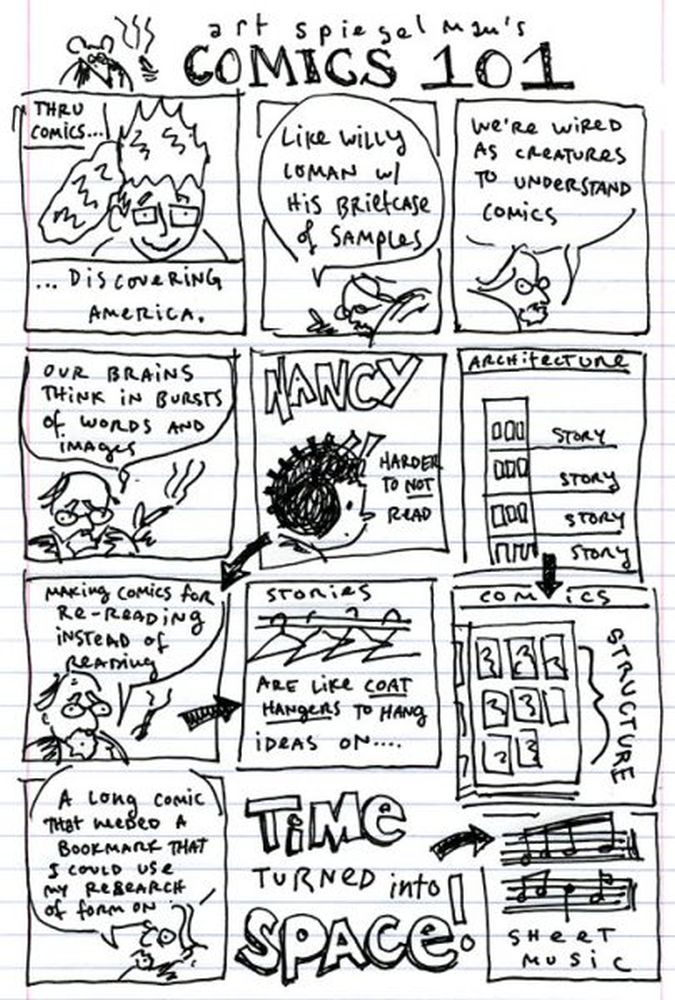 art spiegelman's
COMICS 101
THRU
COMICS...
...DISCOVERING
AMERICA.
Like Willy
LOMAN w/
His BRIEFCASE
of SAMPLES
We're WIRED
AS CREATURES
TO UNDERSTAND
COMICS
OUR BRAINS
THINK IN BURSTS
of WORDS AND
images
NANCY
HARDER
TO NOT
READ
ARCHITECTURE
STORY
STORY
STORY
STORY
MAKING COMICS FOR
RE-READING
INSTEAD of
READING
STORIES
ARE LIKE COAT
HANGERS TO HANG
IDEAS ON....
COMICS
STRUCTURE
A LONG COMIC
THAT NEEDED A
BOOKMARK THAT
I COULD USE
MY RESEARCH
of FORM ON
TiME
TURNED into
SPACE!
SHEET
MUSIC